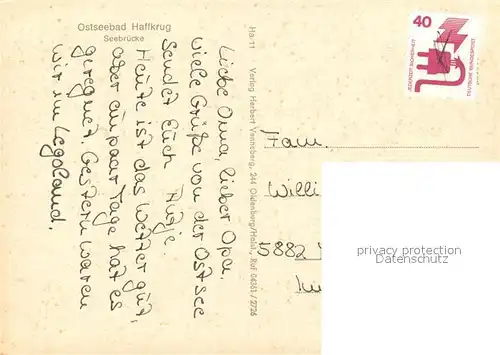 Ostseebad Haffkrug
Seebrücke
Liebe Oma, lieber Opa.
viele Grüße von der Ostsee
sendet Euch Antje.
Heute ist das Wetter gut,
aber ein paar Tage hat es
geregnet. Gestern waren
wir im Legoland.
Ha 11 Verlag Herbert 244 Oldenburg/Holst., Ruf 04361/2726
40
JEDERZEIT SICHERHEIT
DEUTSCHE BUNDESPOST
Fam.
Willi
5882
privacy protection
Datenschutz